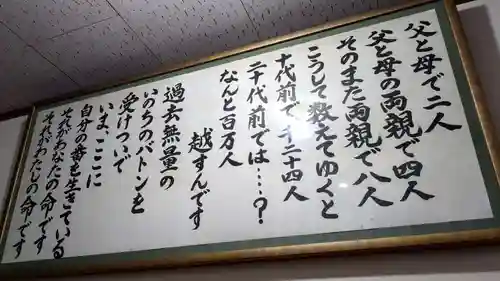 父と母で二人
父と母の両親で四人
そのまた両親で八人
こうして数えてゆくと
十代前で千二十四人
二十代前では‥‥?
なんと百万人
越すんです
過去無量の
いのちのバトンを
受けついで
いま、ここに
自分の番を生きている
それがあなたの命です
それがわたしの命です